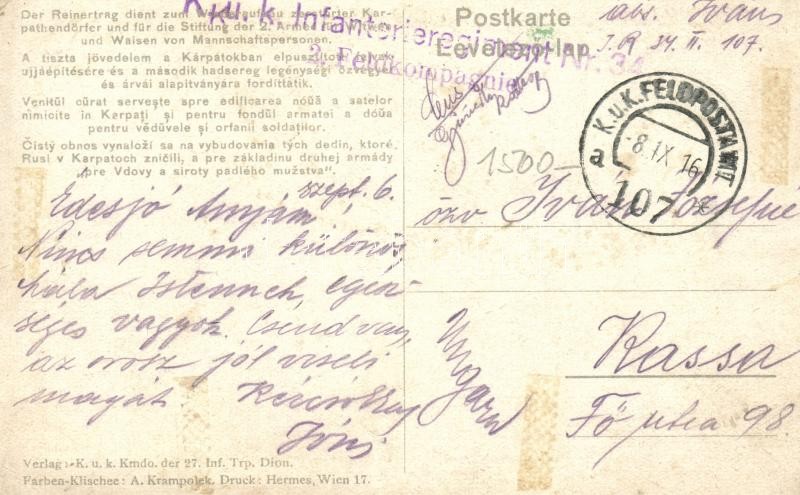 Der Reinertrag dient zum Wiederaufbau zerstörter Kar-
pathendörfer und für die Stiftung der 2. Armee für Witwen
und Waisen von Mannschaftspersonen.
A tiszta jövedelem a Kárpátokban elpusztított falvak
ujjáépítésére és a második hadsereg legénységi özvegyei
és árvái alapitványára fordíttátik.
Venitŭl cŭrat serveşte spre edificarea nóŭă a satelor
nimicite in Karpaţi şi pentru fondŭl armatei a dóŭa
pentru vědŭvele şi orfanii soldaţilor.
Čistý obnos vynaloží sa na vybudovania tých dedin, ktoré
Rusi v Karpatoch zničili, a pre základinu druhej armády
„pre Vdovy a siroty padlého mužstva“.
K.u.k. Infanterieregiment Nr. 34
2. Feldkompagnie
Postkarte
Levelezőlap
abs. Iváns
I.R 34. II. 107.
K.u.K. FELDPOSTAMT
a
-8.IX.16
107
1500-
szept. 6.
Édesjó Anyám,
Nincs semmi különös,
hála Istennek, egés-
séges vagyok. Csend van,
az orosz jól viseli
magát. Kézcsókkal
Jóni
özv. Iván Józsefné
Ungarn
Kassa
Fő utca 98
Verlag: K. u. k. Kmdo. der 27. Inf. Trp. Dion.
Farben-Klischee: A. Krampolek. Druck: Hermes, Wien 17.